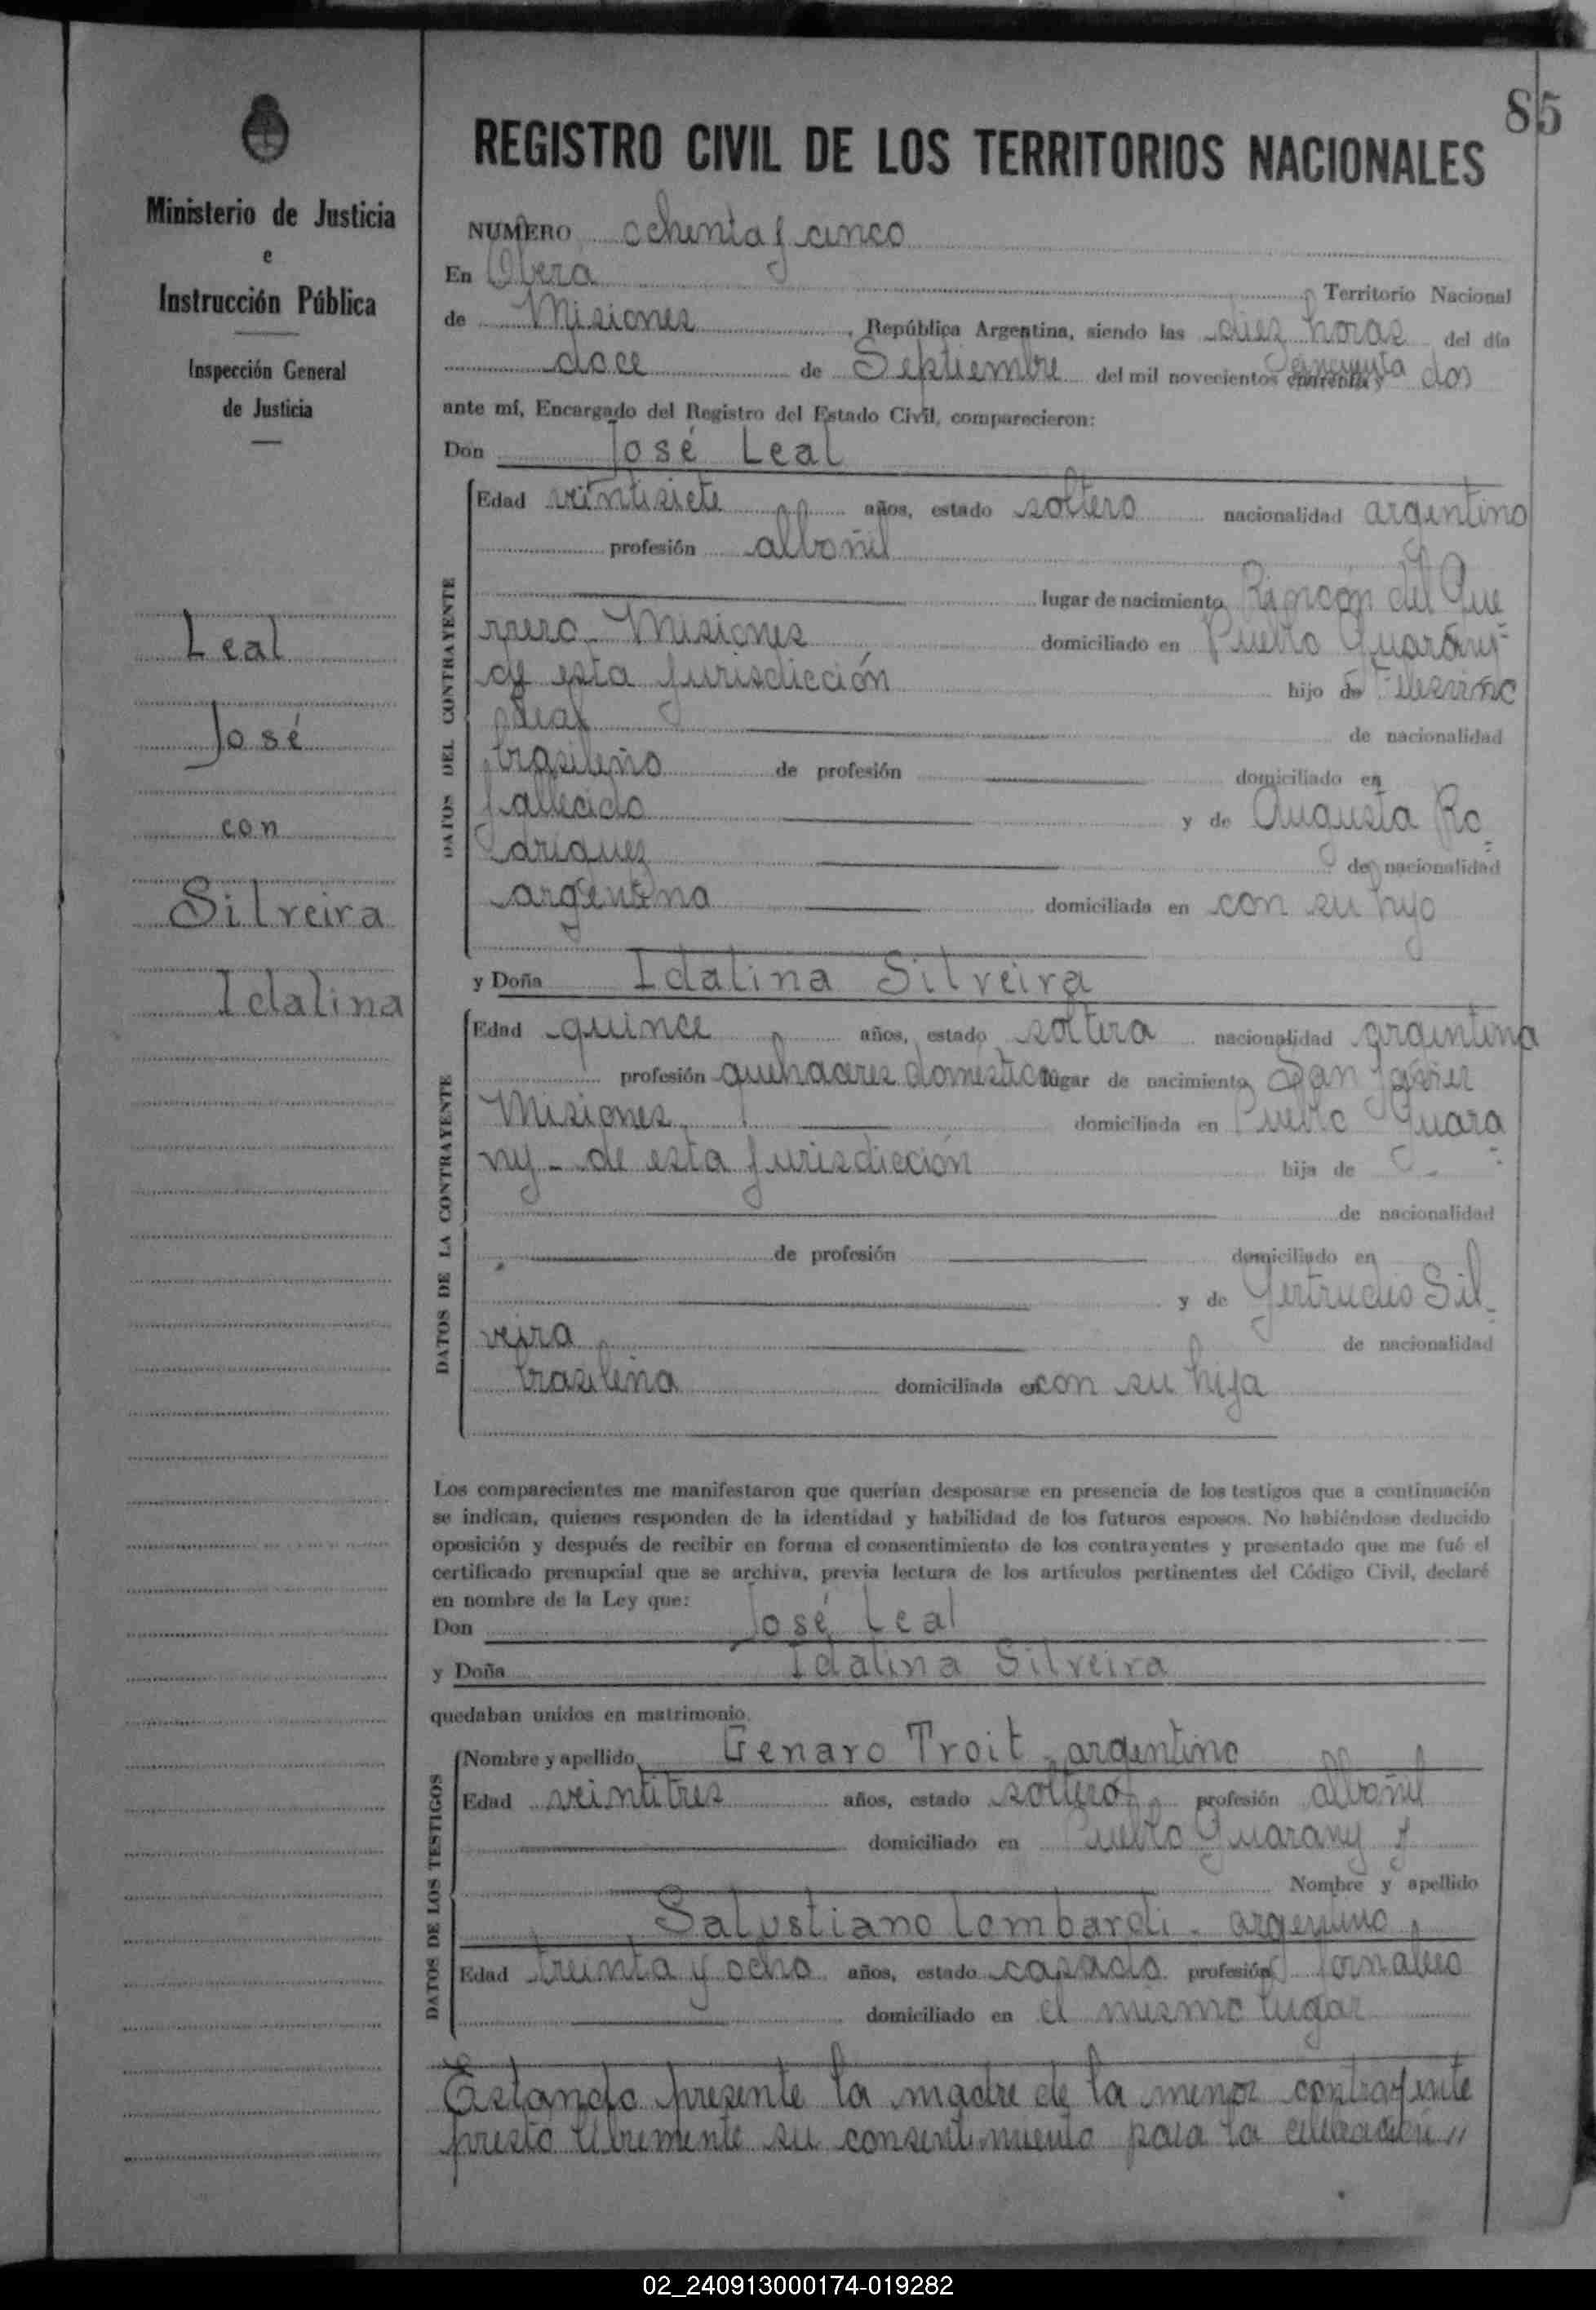 85
Ministerio de Justicia
e
Instrucción Pública
Inspección General
de Justicia
Leal
José
con
Silveira
Idalina
REGISTRO CIVIL DE LOS TERRITORIOS NACIONALES
NUMERO ochenta y cinco
En Obera Territorio Nacional
de Misiones, República Argentina, siendo las diez horas del día
doce de Septiembre del mil novecientos cincuenta y dos
ante mí, Encargado del Registro del Estado Civil, comparecieron:
Don José Leal
DATOS DEL CONTRAYENTE
Edad veintisiete años, estado soltero nacionalidad argentino
profesión albañil
lugar de nacimiento Rincón del Gue
rrero - Misiones domiciliado en Pueblo Guarany-
de esta jurisdicción hijo de
Leal de nacionalidad
brasileño de profesión domiciliado en
fallecido y de Augusta Ro-
driguez de nacionalidad
argentina domiciliada en con su hijo
y Doña Idalina Silveira
DATOS DE LA CONTRAYENTE
Edad quince años, estado soltera nacionalidad argentina
profesión quehaceres domésticos lugar de nacimiento San Javier
Misiones domiciliada en Pueblo Guara
ny - de esta jurisdicción hija de
de nacionalidad
de profesión domiciliado en
y de Gertrudis Sil-
veira de nacionalidad
brasileña domiciliada en con su hija
Los comparecientes me manifestaron que querían desposarse en presencia de los testigos que a continuación
se indican, quienes responden de la identidad y habilidad de los futuros esposos. No habiéndose deducido
oposición y después de recibir en forma el consentimiento de los contrayentes y presentado que me fué el
certificado prenupcial que se archiva, previa lectura de los artículos pertinentes del Código Civil, declaré
en nombre de la Ley que:
Don José Leal
y Doña Idalina Silveira
quedaban unidos en matrimonio.
DATOS DE LOS TESTIGOS
Nombre y apellido Genaro Troit - argentino
Edad veintitres años, estado soltero profesión albañil
domiciliado en Pueblo Guarany y
Nombre y apellido
Salustiano Lombardi - argentino
Edad treinta y ocho años, estado casado profesión jornalero
domiciliado en el mismo lugar
Estando presente la madre de la menor contrayente
presto libremente su consentimiento para la celebración
02_240913000174-019282